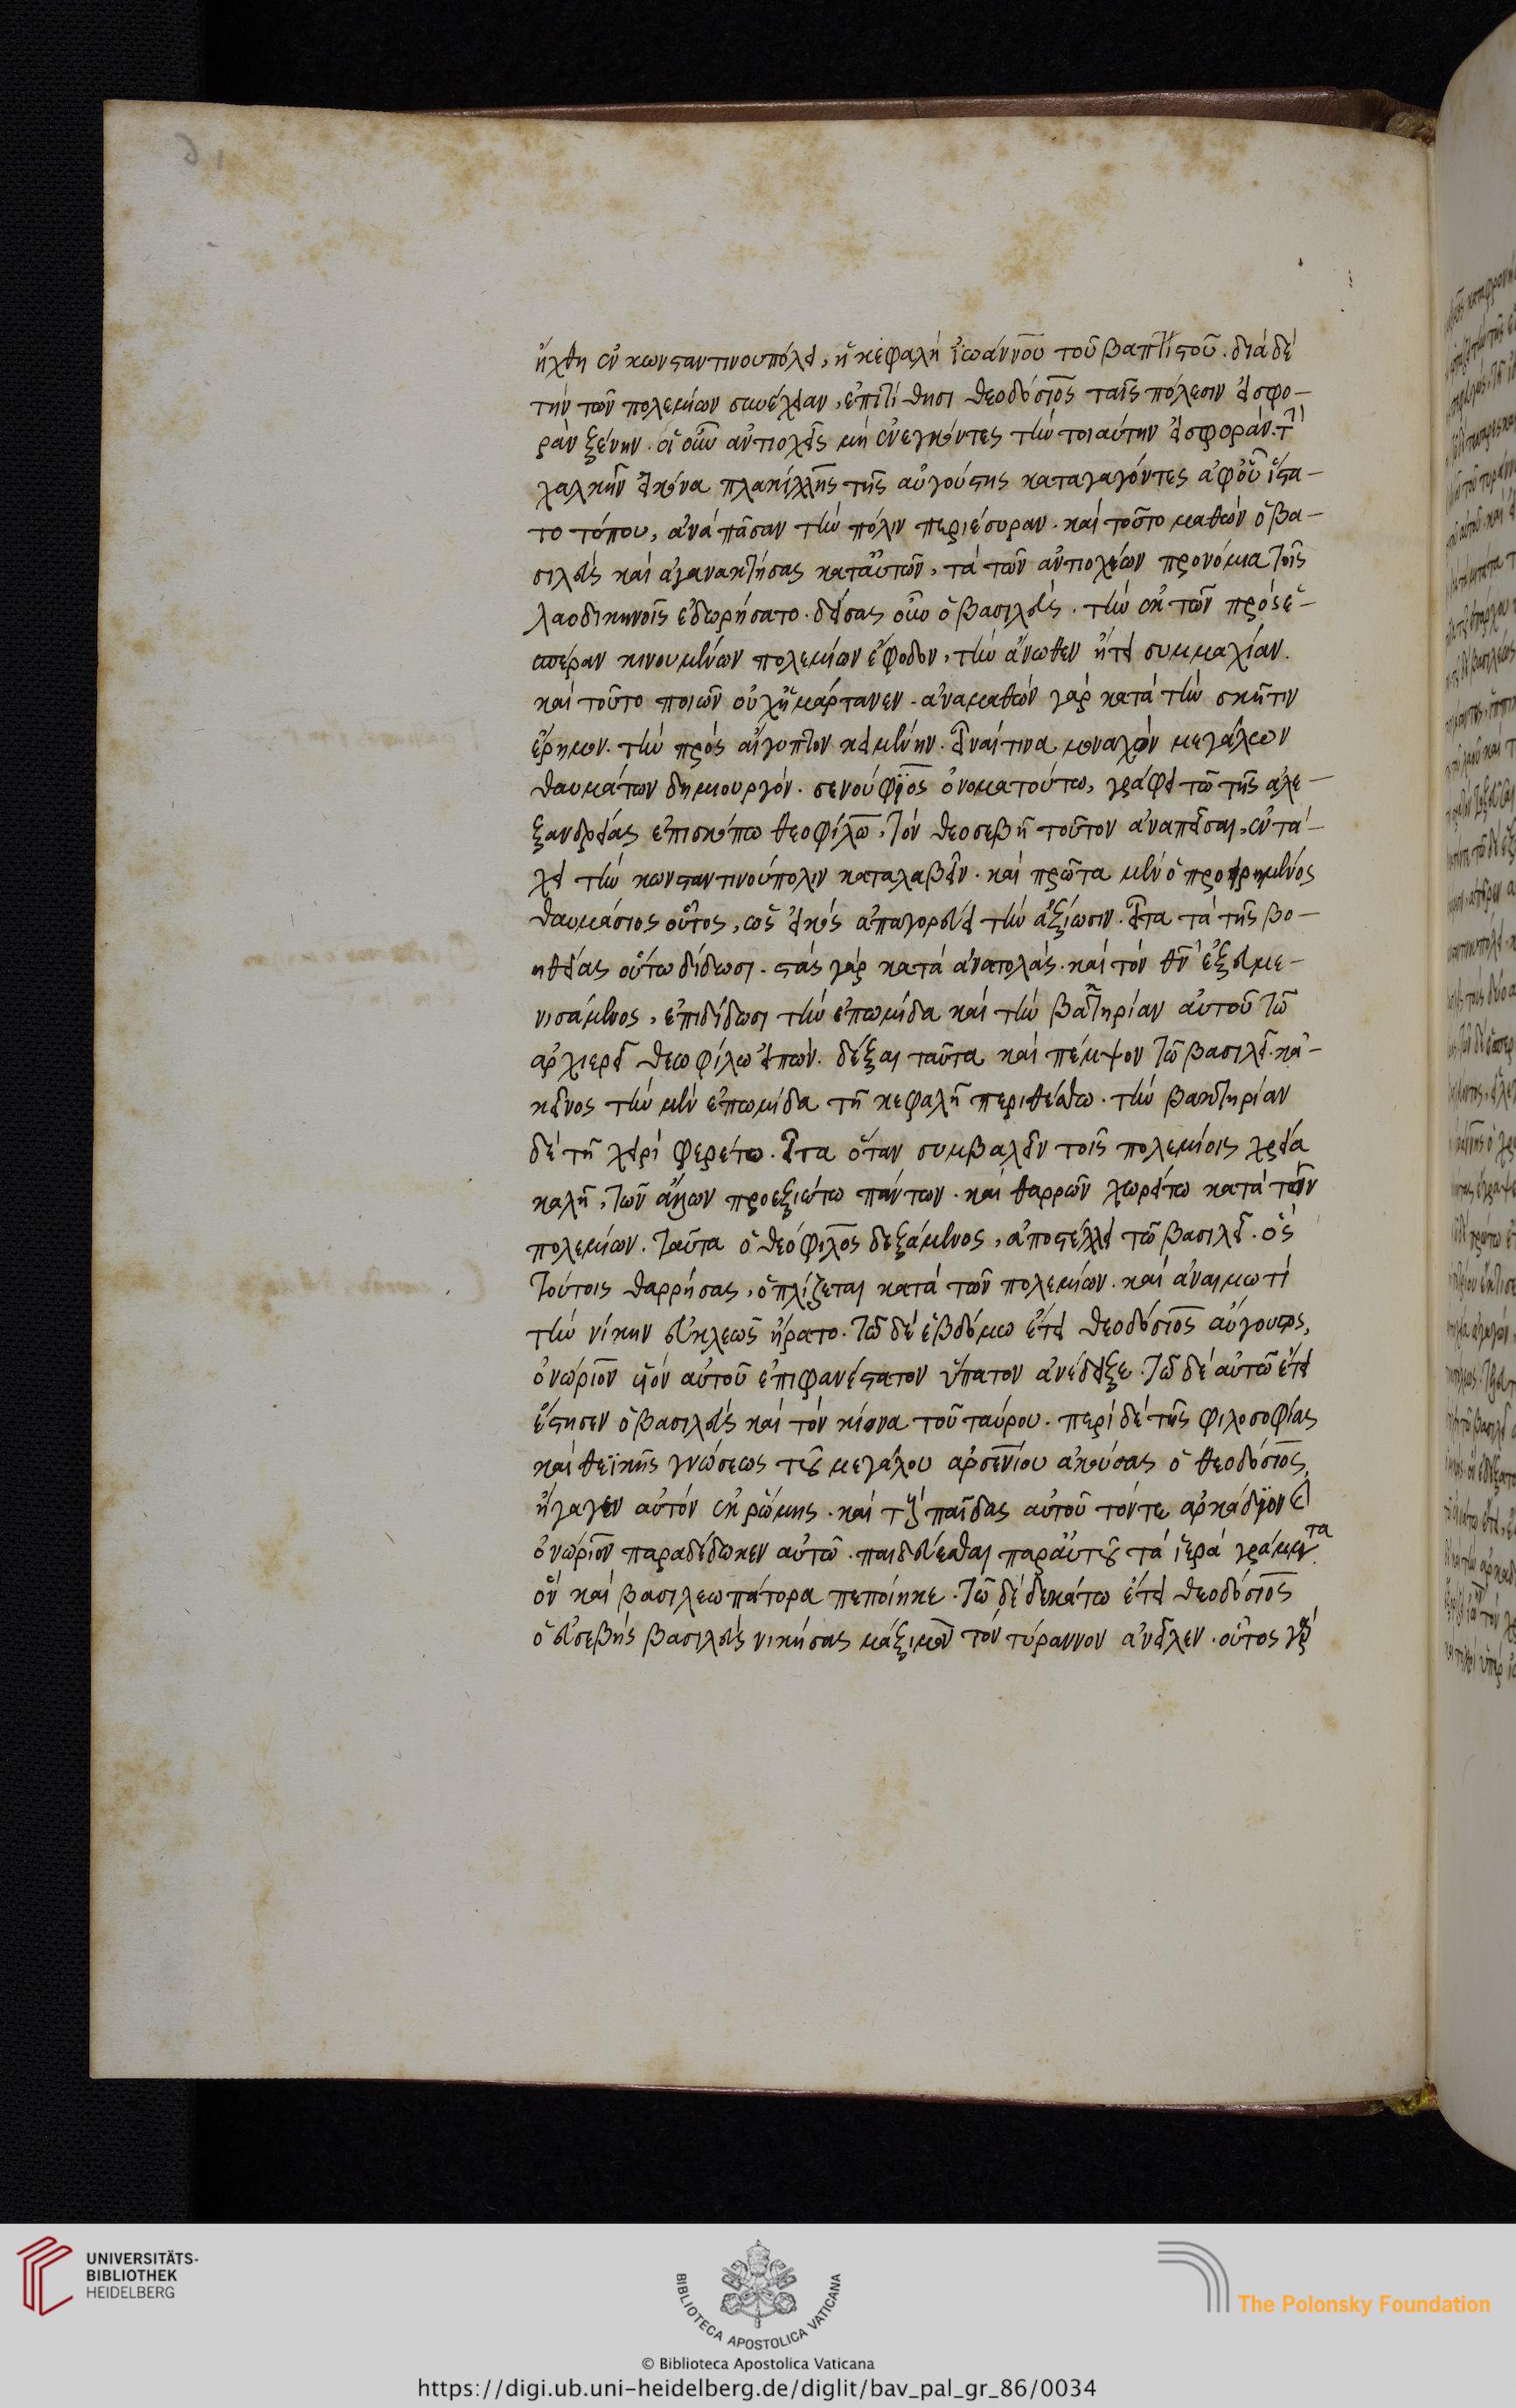 ἤχθη ἐν κωνσταντινουπόλει, ἡ κεφαλὴ ἰωάννου τοῦ βαπτιστοῦ. διὰ δὲ
τὴν τῶν πολεμίων συνέλευσιν, ἐπιτίθησι θεοδόσιος ταῖς πόλεσιν εἰσφο-
ρὰν ξένην. οἱ οὖν ἀντιοχεῖς μὴ ἐνεγκόντες τὴν τοιαύτην εἰσφοράν. τὴν
χαλκῆν εἰκόνα πλακίλλης τῆς αὐγούστης καταγαγόντες ἀφ' οὗ ἵστα-
το τόπου, ἀνὰ πᾶσαν τὴν πόλιν περιέσυραν. καὶ τοῦτο μαθὼν ὁ βα-
σιλεὺς καὶ ἀγανακτήσας κατ' αὐτῶν, τὰ τῶν ἀντιοχέων προνόμια τοῖς
λαοδικηνοῖς ἐδωρήσατο. δείσας οὖν ὁ βασιλεὺς. τὴν ἐκ τῶν πρὸς ἑ-
σπέραν κινουμένων πολεμίων ἔφοδον, τὴν ἄνωθεν ᾔτει συμμαχίαν.
καὶ τοῦτο ποιῶν οὐχ ἡμάρτανεν. ἀναμαθὼν γὰρ κατὰ τὴν σκῆτιν
ἔρημον. τὴν πρὸς αἴγυπτον κειμένην. εἶναί τινα μοναχὸν μεγάλων
θαυμάτων δημιουργόν. σενούφιος ὄνομα τούτω, γράφει τῶ τῆς ἀλε-
ξανδρείας ἐπισκόπω θεοφίλω, τὸν θεοσεβῆ τοῦτον ἀναπεῖσαι, ἐν τά-
χει τὴν κωνσταντινούπολιν καταλαβεῖν. καὶ πρῶτα μὲν ὁ προειρημένος
θαυμάσιος οὗτος, ὡς εἰκὸς ἀπαγορεύει τὴν ἀξίωσιν. εἶτα τὰ τῆς βο-
ηθείας οὕτω δίδωσι. στὰς γὰρ κατὰ ἀνατολὰς. καὶ τὸν θν ἐξευμε-
νισάμενος, ἐπιδίδωσι τὴν ἐπωμίδα καὶ τὴν βακτηρίαν αὐτοῦ τῶ
ἀρχιερεῖ θεοφίλω εἰπών. δέξαι ταῦτα καὶ πέμψον τῶ βασιλεῖ. κἀ-
κεῖνος τὴν μὲν ἐπωμίδα τῆ κεφαλῆ περιθέσθω. τὴν βακτηρίαν
δὲ τῆ χειρὶ φερέτω. εἶτα ὅταν συμβαλεῖν τοῖς πολεμίοις χρεία
καλῆ, τῶν ἄλλων προεξιέτω πάντων. καὶ θαρρῶν χωρείτω κατὰ τῶν
πολεμίων. ταῦτα ὁ θεόφιλος δεξάμενος, ἀποστέλλει τῶ βασιλεῖ. ὃς
τούτοις θαρρήσας, ὁπλίζεται κατὰ τῶν πολεμίων. καὶ ἀναιμωτὶ
τὴν νίκην εὐκλεῶς ἤρατο. τῶ δὲ ἑβδόμω ἔτει θεοδόσιος αὔγουστος,
ὀνώριον υἱὸν αὐτοῦ ἐπιφανέστατον ὕπατον ἀνέδειξε. τῶ δὲ αὐτῶ ἔτει
ἔστησεν ὁ βασιλεὺς καὶ τὸν κίονα τοῦ ταύρου. περὶ δὲ τῆς φιλοσοφίας
καὶ θεϊκῆς γνώσεως τοῦ μεγάλου ἀρσενίου ἀκούσας ὁ θεοδόσιος,
ἤγαγεν αὐτὸν ἐκ ῥώμης. καὶ τοὺς παῖδας αὐτοῦ τόν τε ἀρκάδιον καὶ
ὀνώριον παραδέδωκεν αὐτῶ. παιδεύεσθαι παρ' αὐτοῦ τὰ ἱερὰ γράμματα.
ὃν καὶ βασιλεωπάτορα πεποίηκε. τῶ δὲ δεκάτω ἔτει θεοδόσιος
ὁ εὐσεβὴς βασιλεὺς νικήσας μάξιμον τὸν τύραννον ἀνεῖλεν. οὗτος γὰρ
UNIVERSITÄTS-
BIBLIOTHEK
HEIDELBERG
BIBLIOTECA APOSTOLICA VATICANA
The Polonsky Foundation
© Biblioteca Apostolica Vaticana
https://digi.ub.uni-heidelberg.de/diglit/bav_pal_gr_86/0034